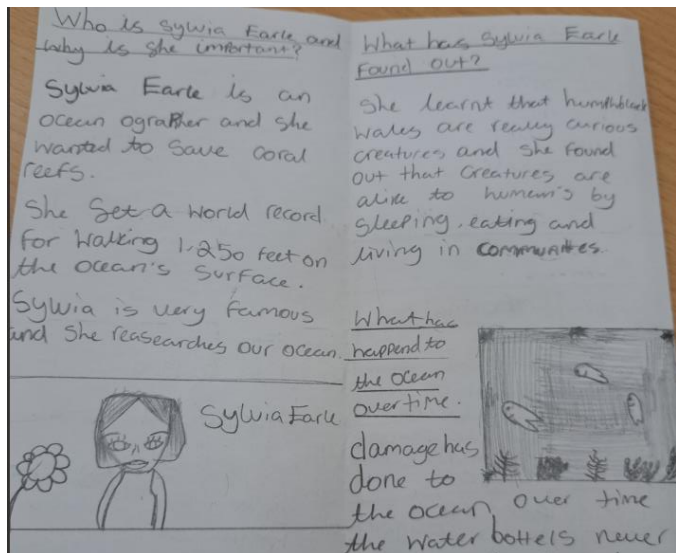 Who is Sylwia Earle and
why is she important?
Sylwia Earle is an
ocean ographer and she
wanted to save coral
reefs.
She Set a world record
for walking 1,250 feet on
the ocean's surface.
Sylwia is very famous
and She reasearches our ocean.
Sylwia Earle
What has Sylwia Earle
Found out?
She learnt that humphback
wales are really curious
creatures and she found
out that creatures are
alike to humem's by
sleeping, eating and
living in communites.
What has
happend to
the ocean
over time.
damage has
done to
the ocean over time
the water bottels never